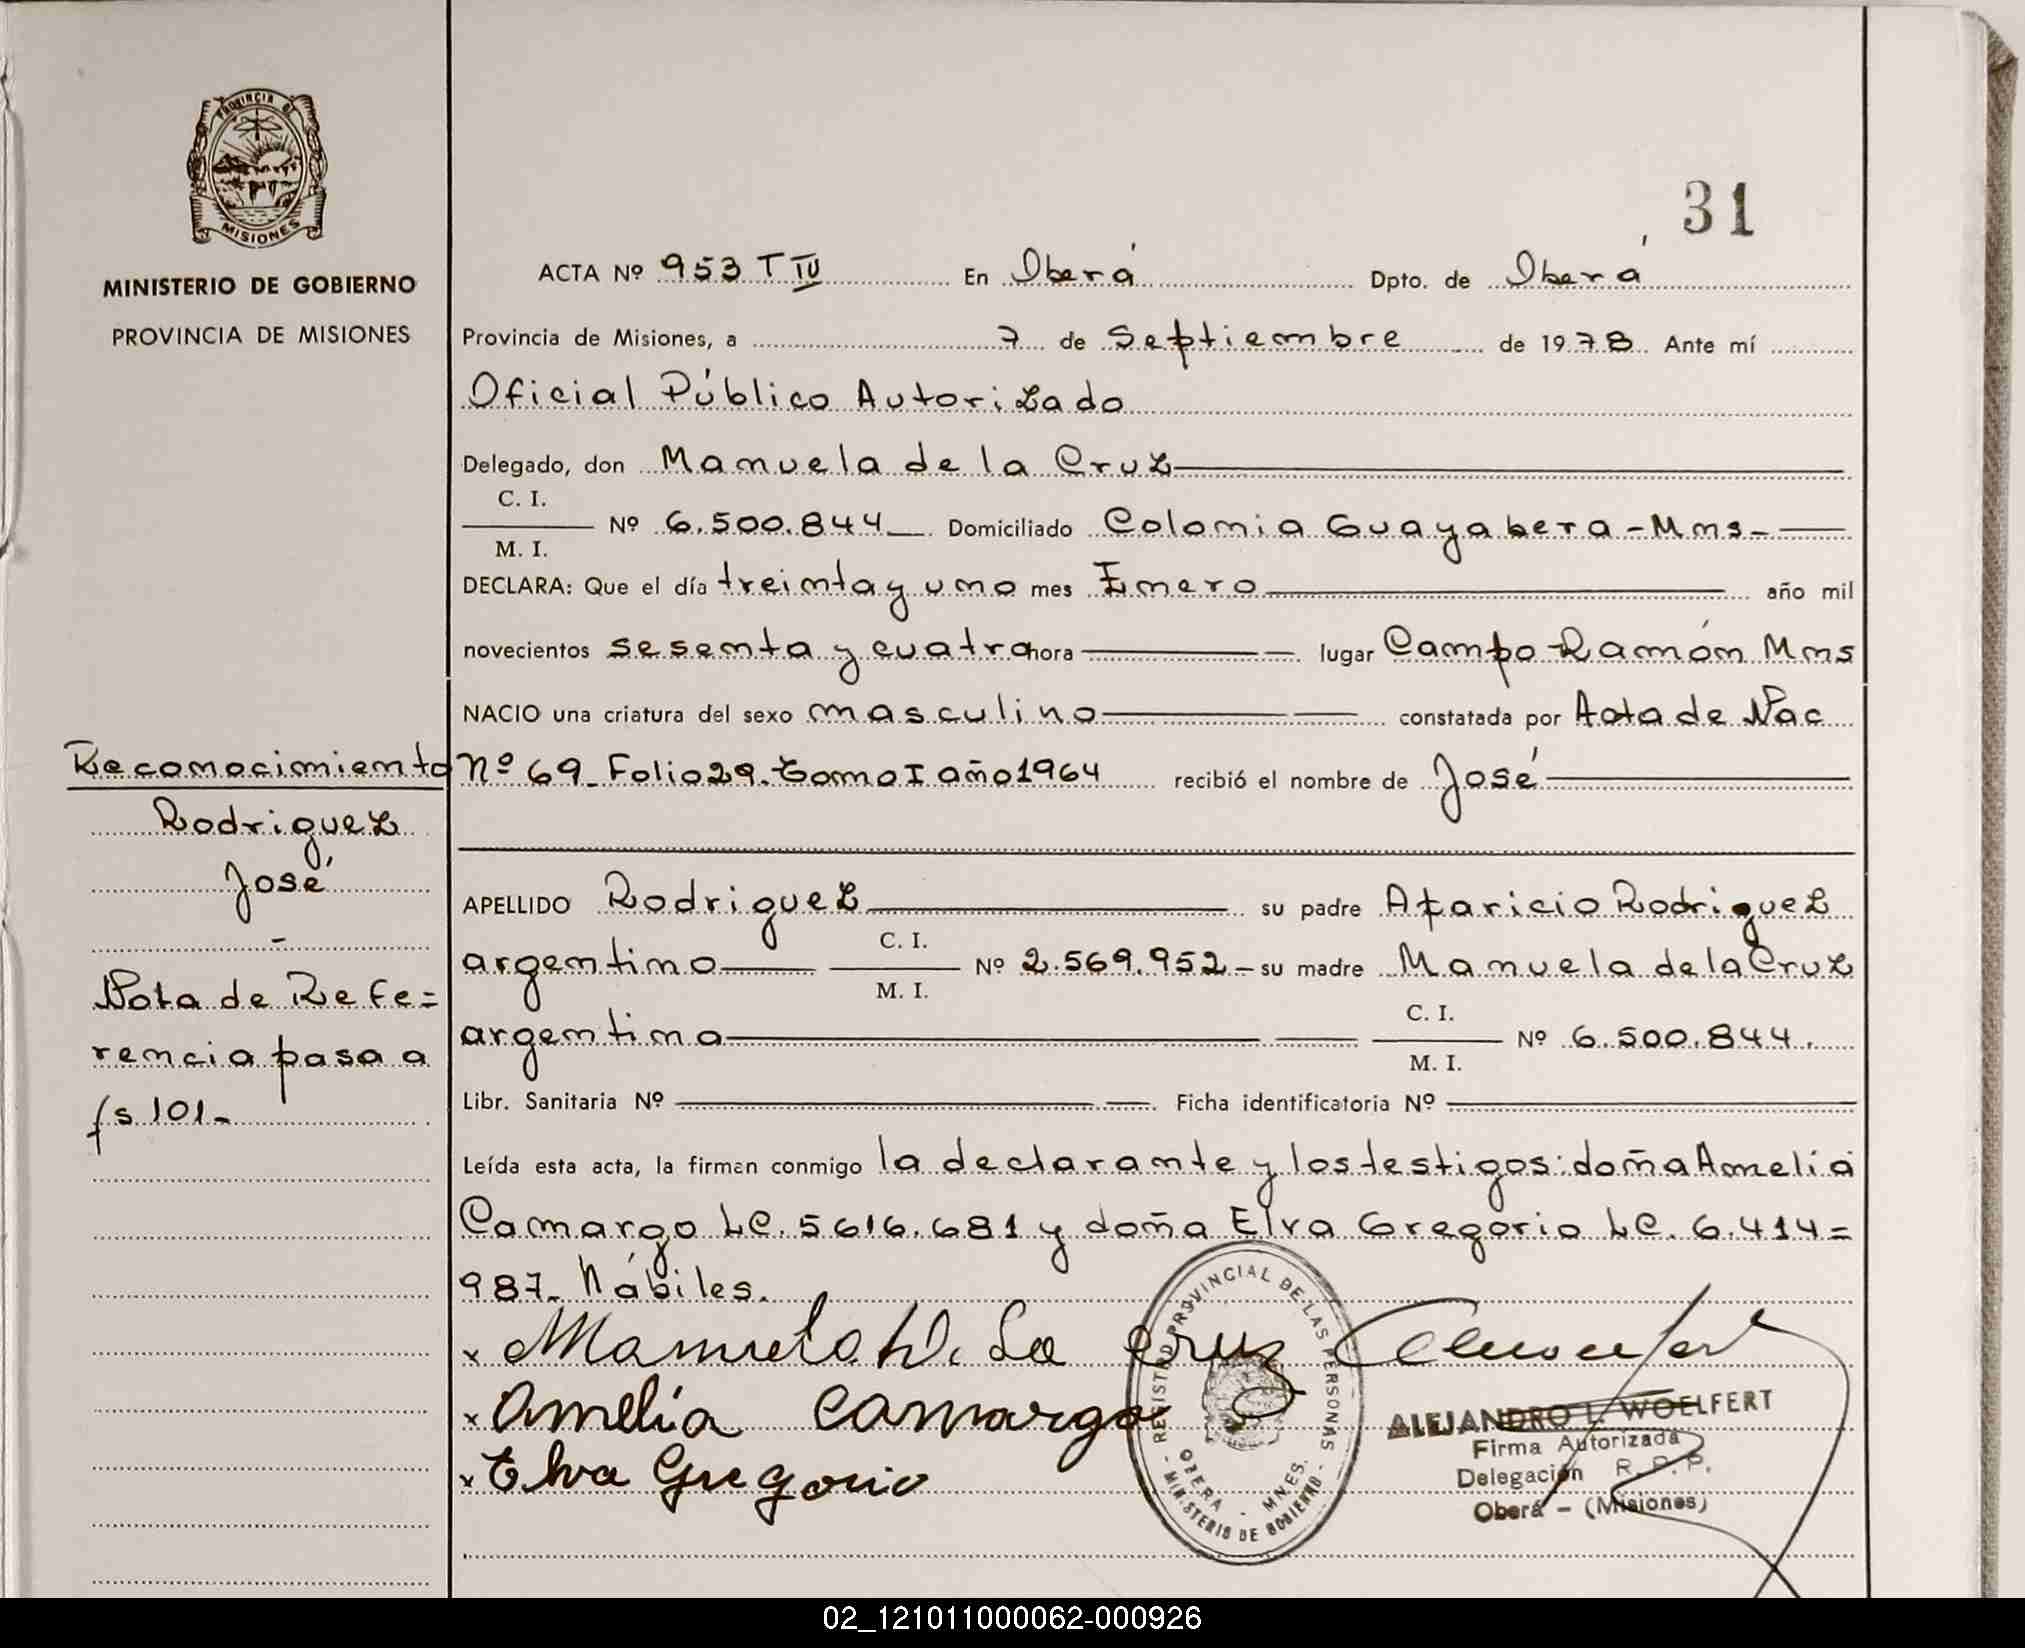 PROVINCIA DE
MISIONES
MINISTERIO DE GOBIERNO
PROVINCIA DE MISIONES
31
ACTA Nº 953 T IV En Oberá Dpto. de Oberá
Provincia de Misiones, a 7 de Septiembre de 1978 Ante mí
Oficial Público Autorizado
Delegado, don Manuela de la Cruz
C. I.
M. I. Nº 6.500.844 Domiciliado Colonia Guayabera - Mns -
DECLARA: Que el día treinta y uno mes Enero año mil
novecientos sesenta y cuatro hora lugar Campo Ramón Mns
NACIO una criatura del sexo masculino constatada por Acta de Nac
Nº 69 - Folio 29. Tomo I año 1964 recibió el nombre de José
APELLIDO Rodriguez su padre Aparicio Rodriguez
argentino C. I. M. I. Nº 2.569.952 - su madre Manuela de la Cruz
argentina C. I. M. I. Nº 6.500.844.
Libr. Sanitaria Nº Ficha identificatoria Nº
Leída esta acta, la firman conmigo la declarante y los testigos: doña Amelia
Camargo LC. 5616.681 y doña Elva Gregorio LC. 6.414=
987- hábiles.
x Manuela D. La Cruz
x Amelia Camargo
x Elva Gregorio
Reconocimiento
Rodriguez
José
-
Nota de Refe=
rencia pasa a
fs 101-
REGISTRO PROVINCIAL DE LAS PERSONAS
- MINISTERIO DE GOBIERNO -
OBERA - MNES.
ALEJANDRO L. WOELFERT
Firma Autorizada
Delegación R. P. P.
Oberá - (Misiones)
02_121011000062-000926